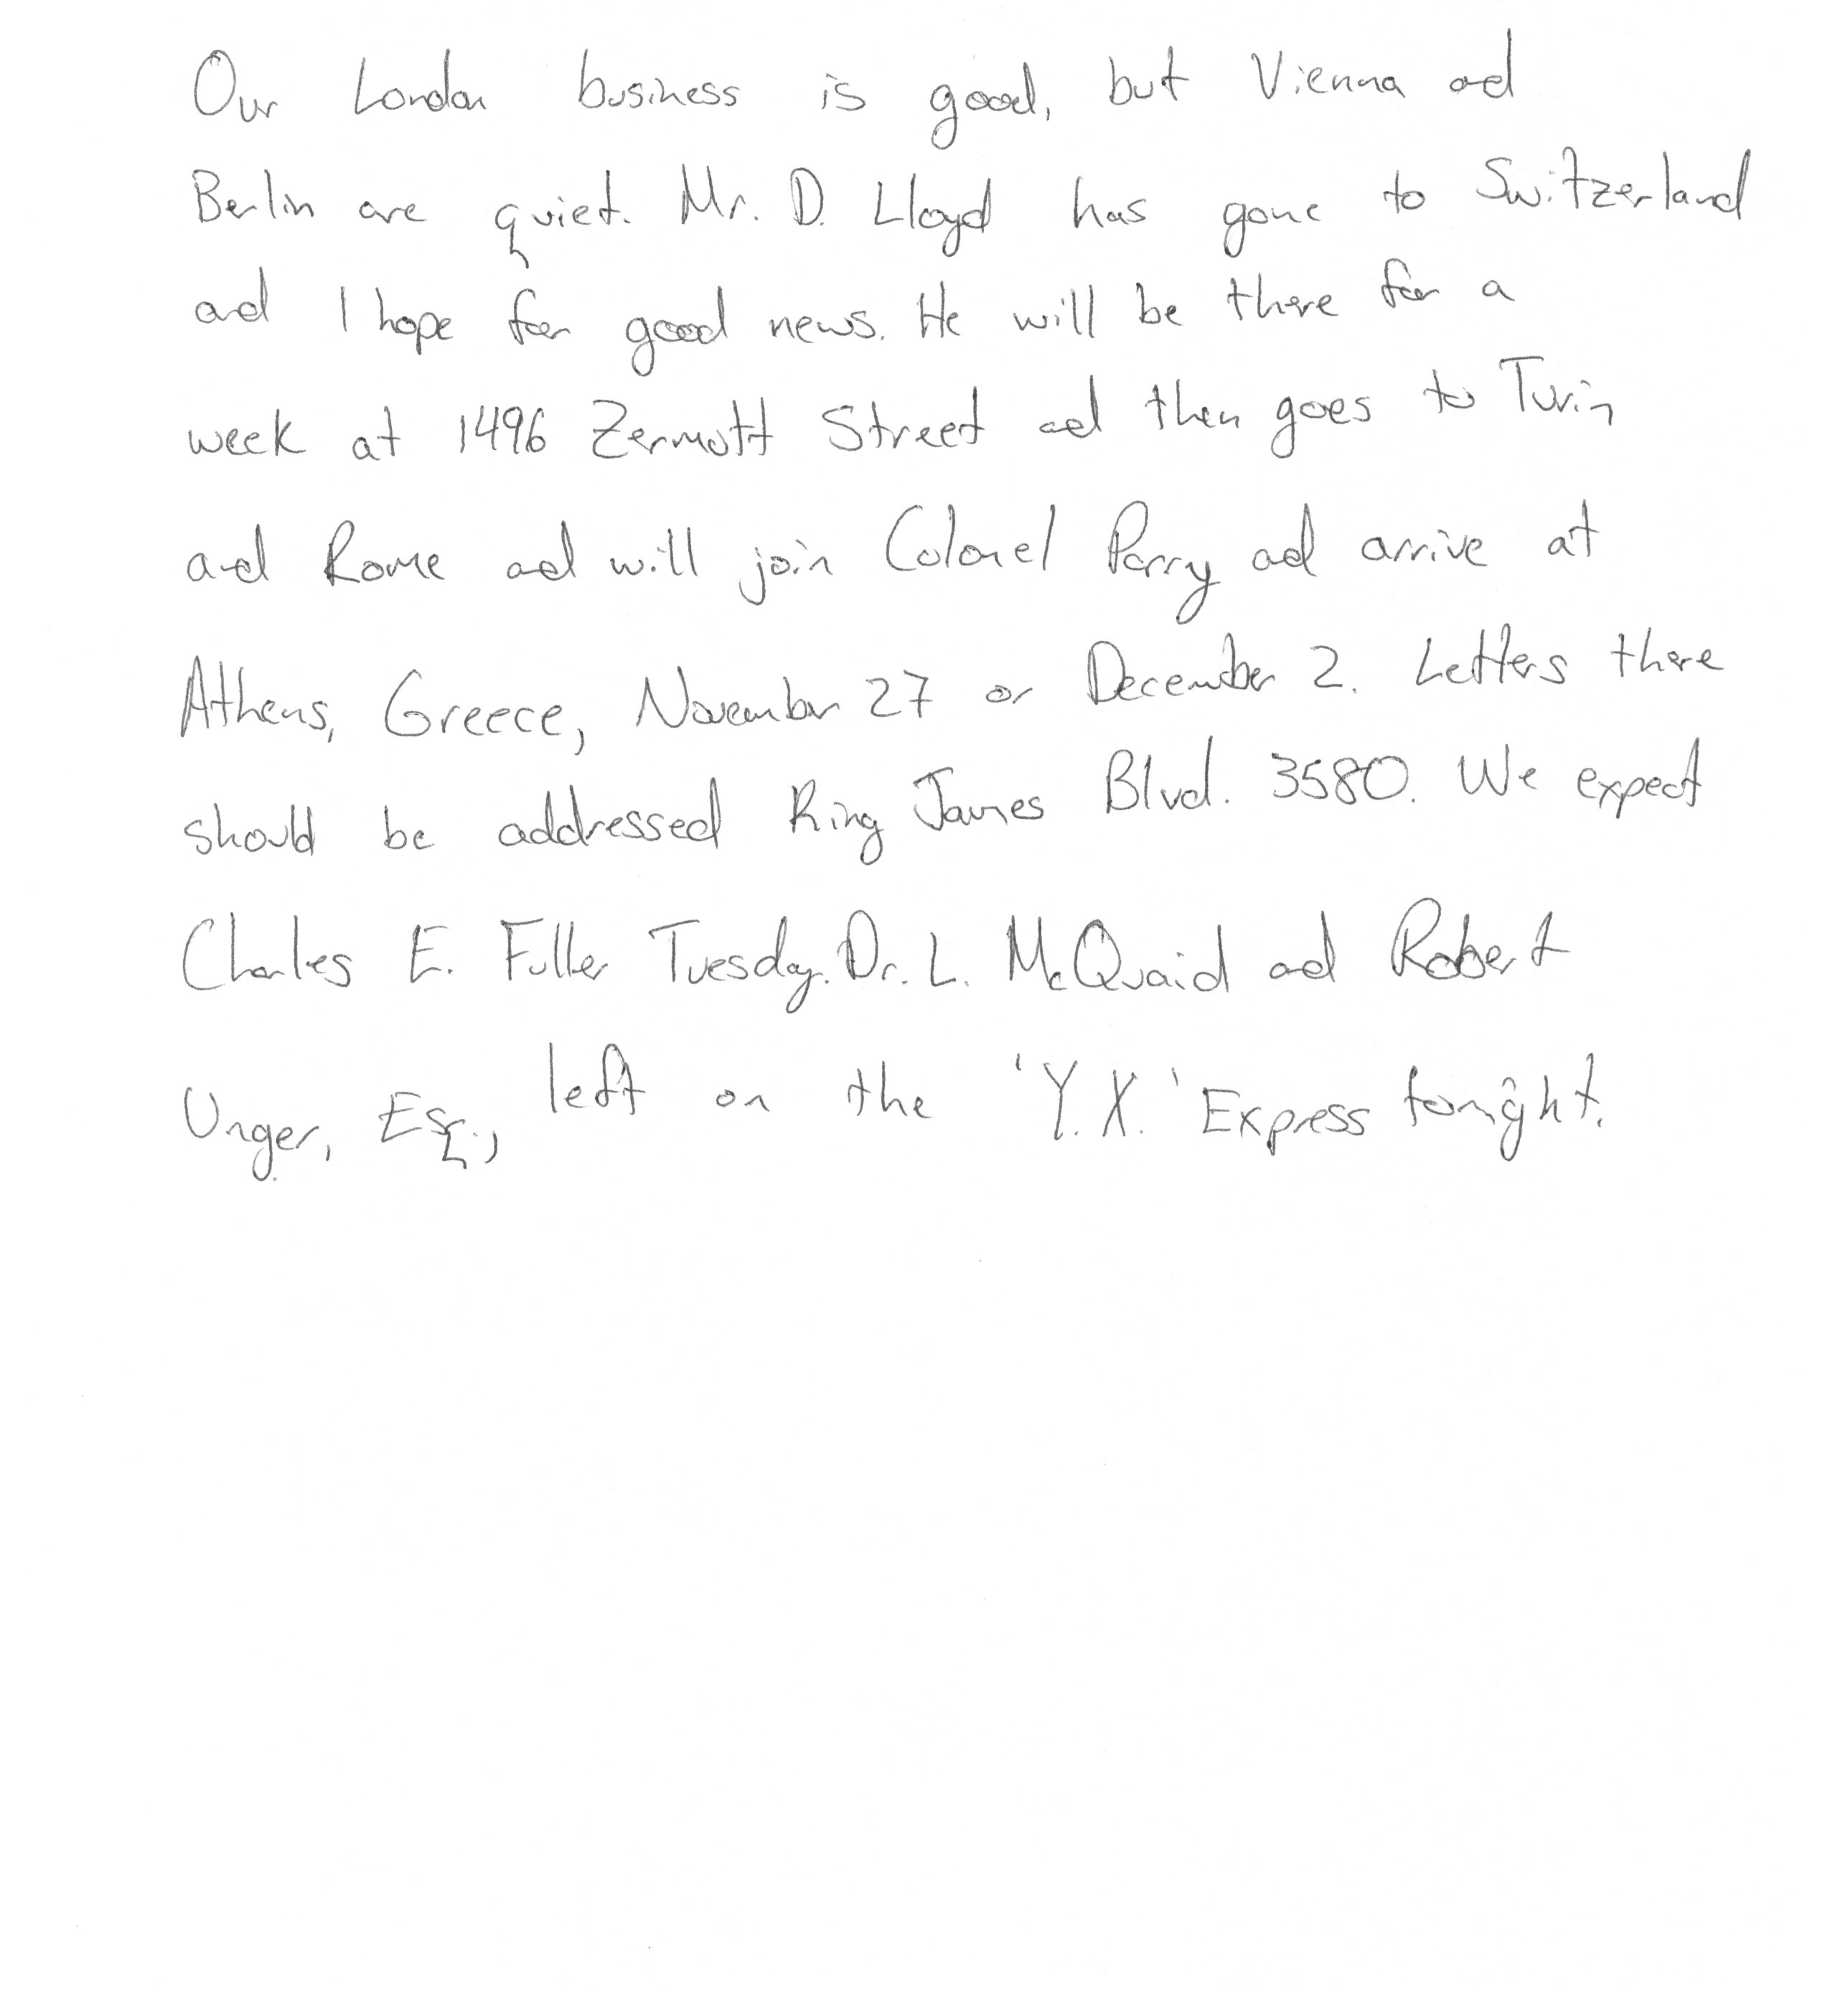 Our London business is good, but Vienna and
Berlin are quiet. Mr. D. Lloyd has gone to Switzerland
and I hope for good news. He will be there for a
week at 1496 Zermott Street and then goes to Turin
and Rome and will join Colonel Parry and arrive at
Athens, Greece, November 27 or December 2. Letters there
should be addressed King James Blvd. 3580. We expect
Charles E. Fuller Tuesday. Dr. L. McQuaid and Robert
Unger, Esq., left on the 'Y.X.' Express tonight.